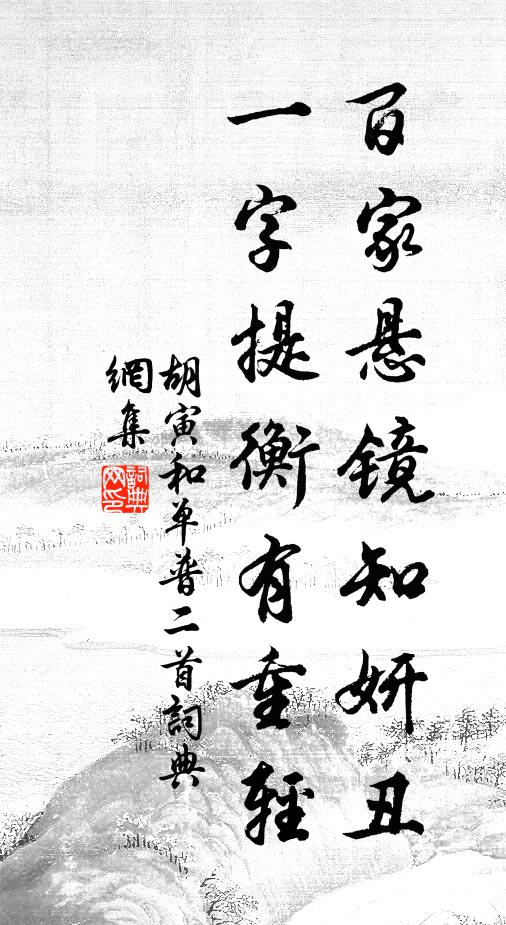 百家悬镜知妍丑
一字提衡有重轻
胡寅和单普二首詞典
網集
詞典网印